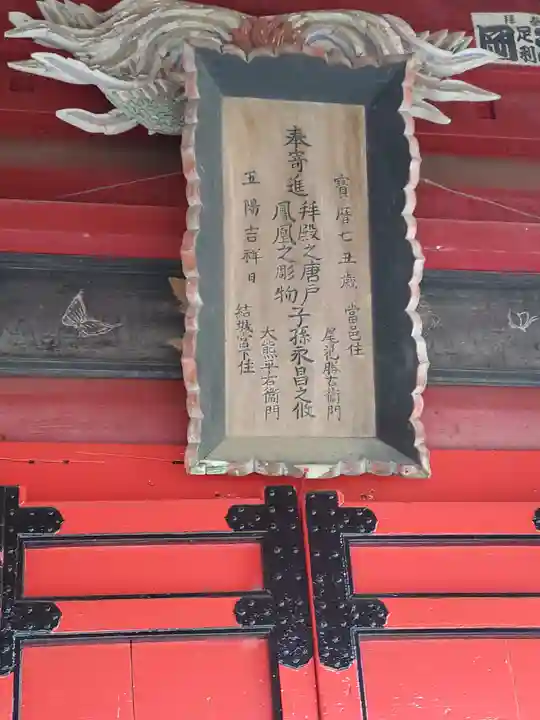 寳暦七丑歳
當邑住
尾花勝右衛門
奉寄進
拝殿之唐戸
鳳凰之彫物
子孫永昌之攸
正陽吉祥日
大熊平右衛門
結城宮下住
足利